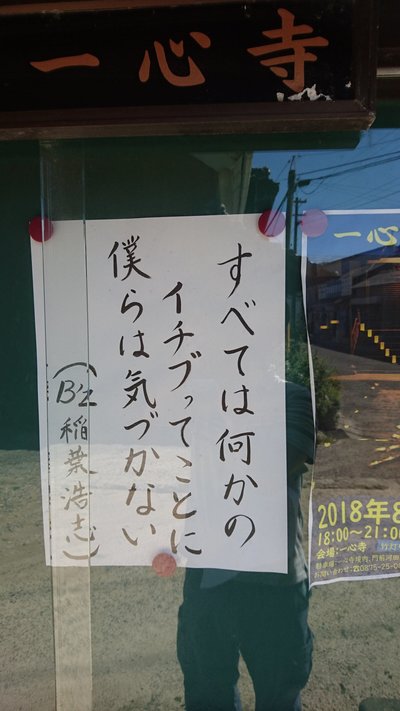 一心寺
すべては何かの
イチブってことに
僕らは気づかない
(B'z 稲葉浩志)
一心
2018年8
18:00~21:0
会場:一心寺
お問い合わせ:☎0875-25-0